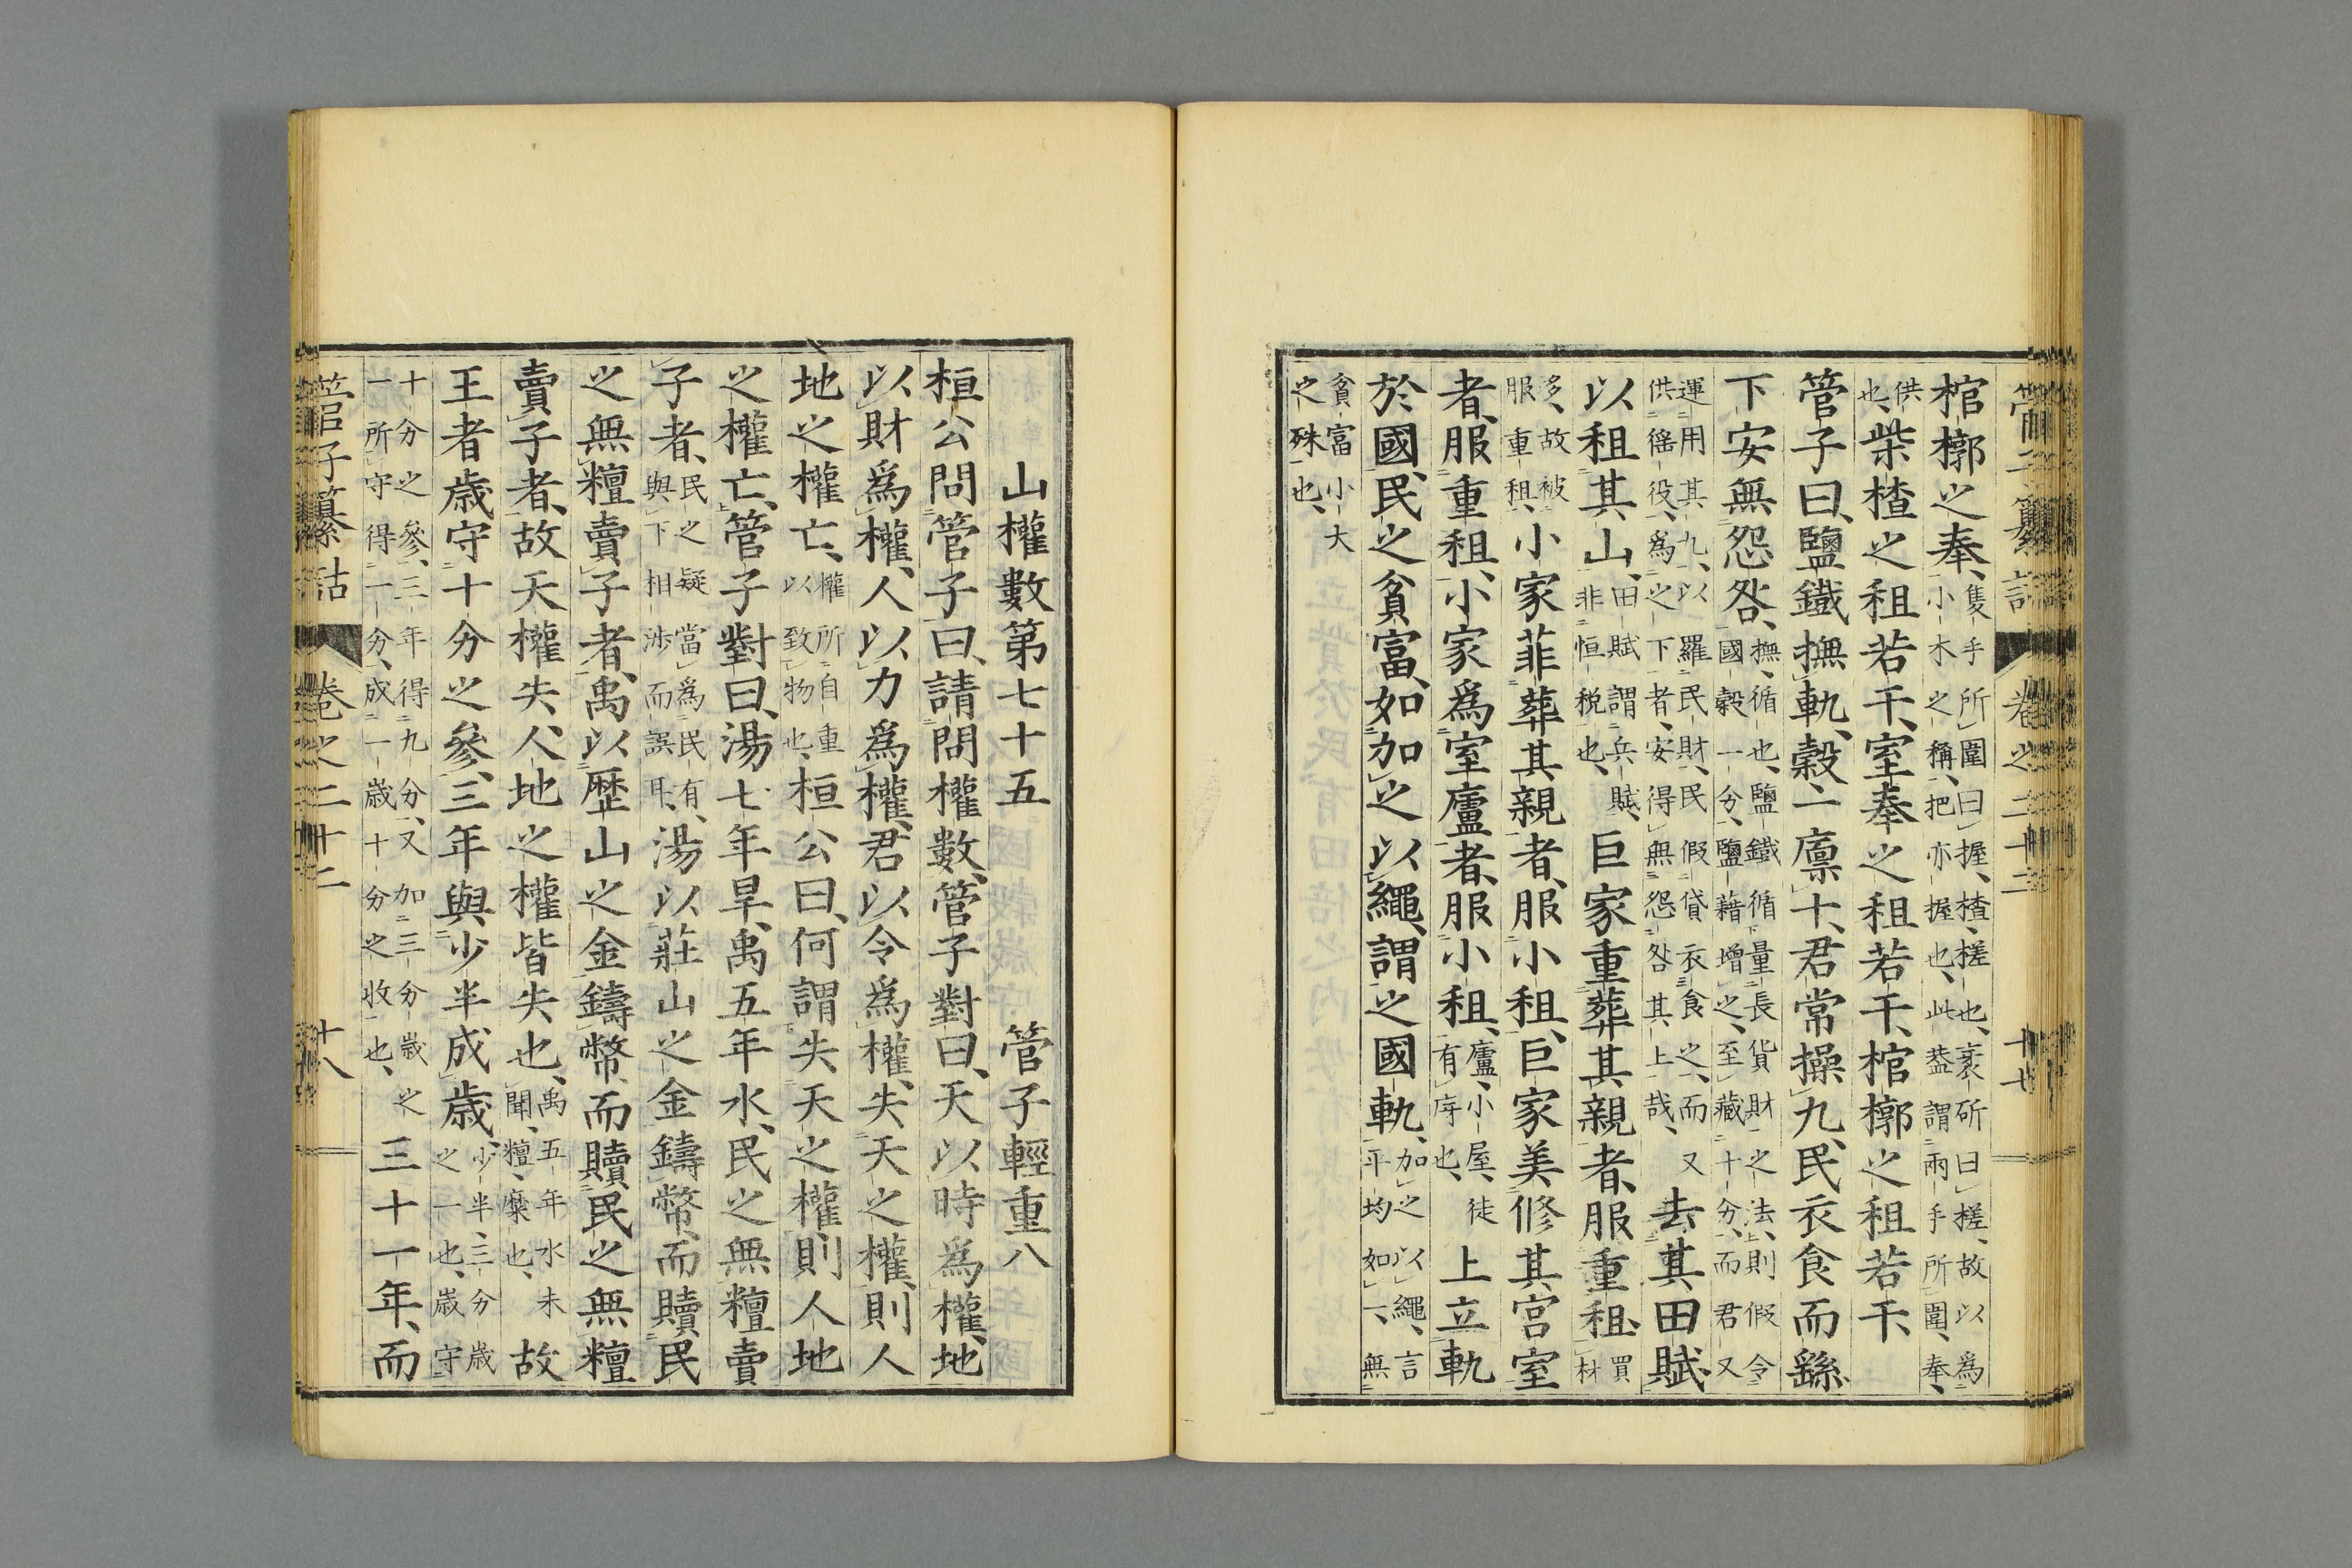 管子纂詁　卷之二十二　十七
棺槨之奉、隻手所圍曰握、楂、槎也、衺斫曰槎、故以爲小木之稱、把亦握也、此葢謂兩手所圍、奉、
供也、柴楂之租若干、室奉之租若干、棺槨之租若干、
管子曰、鹽鐵撫軌、穀一廩十、君常操九、民衣食而繇
下安無怨咎、撫、循也、鹽鐵循量長貨財之法、則假令國穀一分、鹽藉增之、至藏十分、而君又
運用其九、以羅民財、民假貸衣食之、而又供徭役、爲之下者、安得無怨咎其上哉、去其田賦
以租其山、田賦謂兵賦、非恒稅也、巨家重葬其親者、服重租、買材
多、故被服重租、小家菲葬其親者、服小租、巨家美修其宮室
者、服重租、小家爲室廬者、服小租、廬、小屋、徒有序也、上立軌
於國、民之貧富、如加之以繩、謂之國軌、加之以繩、言平均如一、無
貧富小大之殊也、
山權數第七十五　管子輕重八
桓公問管子曰、請問權數、管子對曰、天以時爲權、地
以財爲權、人以力爲權、君以令爲權、失天之權、則人
地之權亡、權所自重以致物也、桓公曰、何謂失天之權、則人地
之權亡、管子對曰、湯七年旱、禹五年水、民之無𥼷賣
子者、民之疑當爲民有、與下相涉而誤耳、湯以莊山之金鑄幣、而贖民
之無𥼷賣子者、禹以歷山之金鑄幣、而贖民之無𥼷
賣子者、故天權失、人地之權皆失也、禹五年水未聞、𥼷、糜也、故
王者歲守十分之參、三年與少半成歲、少半、三分歲之一也、歲守
十分之參、三年得九分、又加三分歲之一所守得一分、成一歲十分之收也、三十一年、而
管子纂詁　卷之二十二　十八